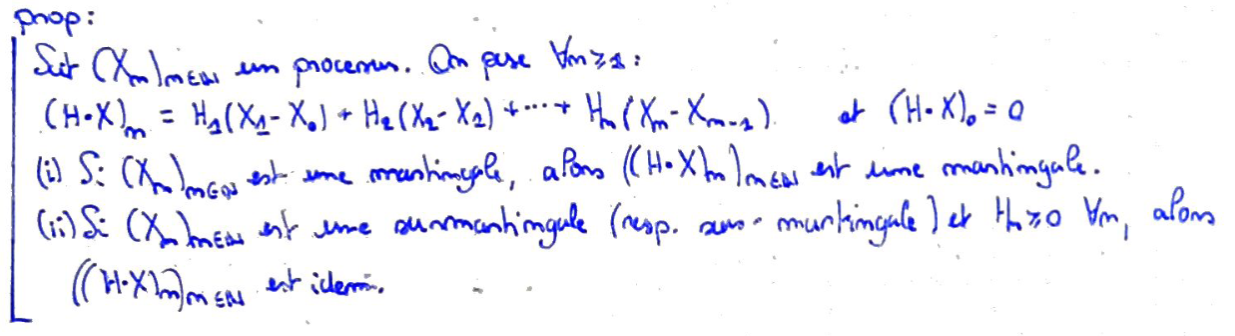 prop:
Soit (Xₙ)ₙ∈ℕ un processus. On pose ∀n≥1:
(H•X)ₙ = H₁(X₁-X₀) + H₂(X₂-X₁) + ⋯ + Hₙ(Xₙ-Xₙ₋₁) et (H•X)₀ = 0
(i) Si (Xₙ)ₙ∈ℕ est une martingale, alors ((H•X)ₙ)ₙ∈ℕ est une martingale.
(ii) Si (Xₙ)ₙ∈ℕ est une surmartingale (resp. sous-martingale) et Hₙ≥0 ∀n, alors
((H•X)ₙ)ₙ∈ℕ est idem.